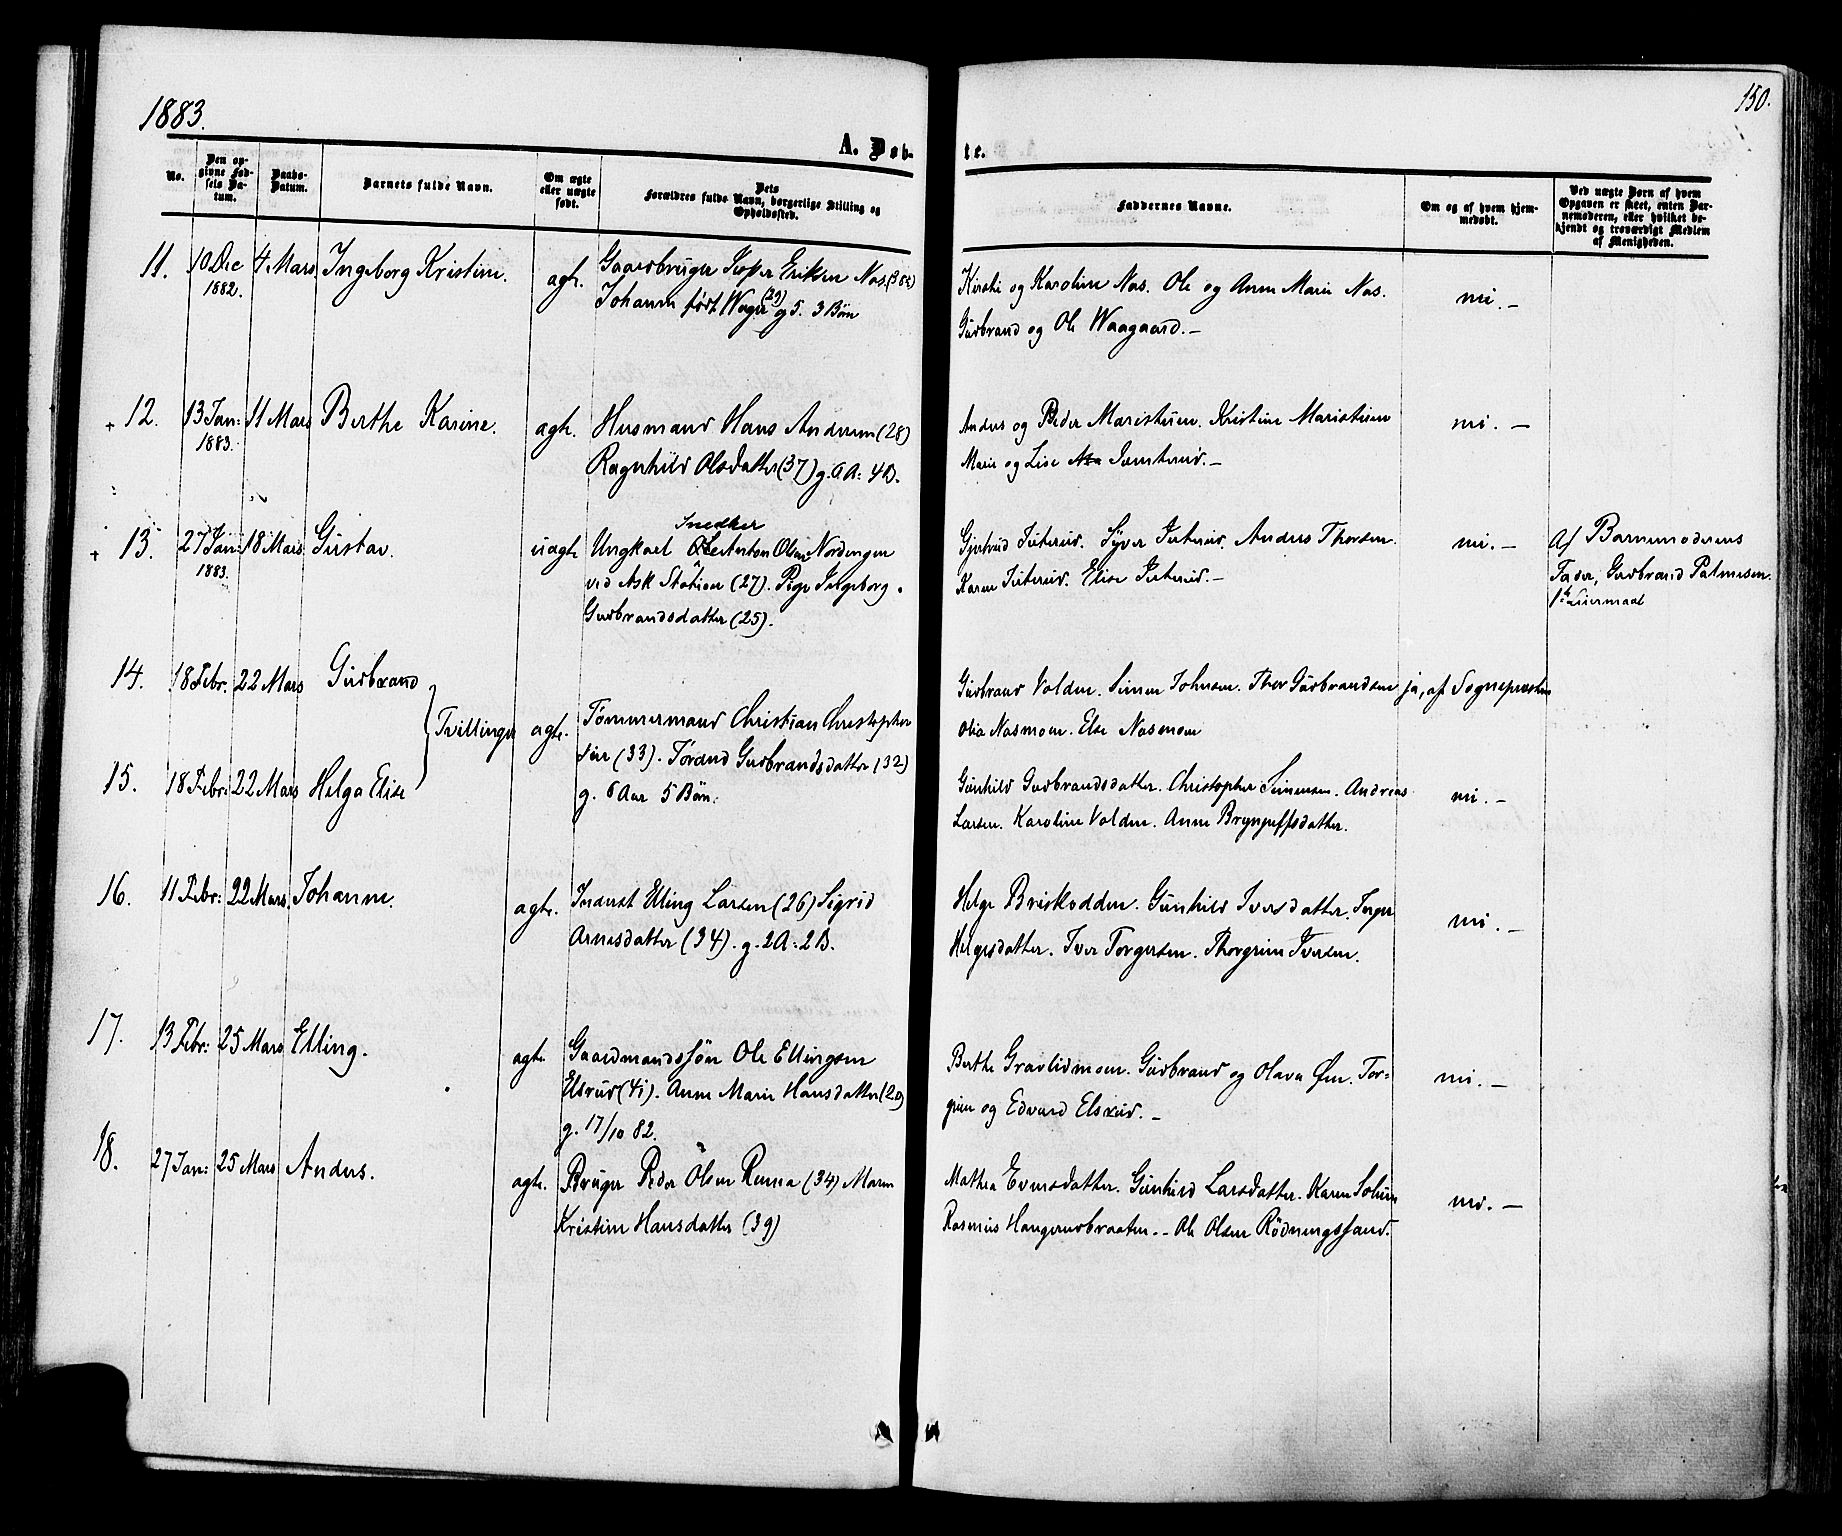 1883.
150.
A. Døb-
te.
No.
Den op-
givne Fød-
sels Da-
tum.
Daabs-
Datum.
Barnets fulde Navn.
Om ægte
eller uægte
født.
Dets
Forældres fulde Navn, borgerlige Stilling og
Opholdssted.
Faddernes Navne.
Om og af hvem hjem-
medøbt.
Ved uægte Børn af hvem
Opgaven er skeet, enten Bar-
nemoderen, eller hvilket be-
kjendt og troværdigt Medlem
af Menigheden.
11. 10 Dec 4 Mars Ingeborg Kristine. ægte. Gaardbruger Eriksen Næs.
1882. Johanne født (29) g 5. 3 Børn
Kirsti og Karoline Næs. Ole og Anne Marie Næs.
Gudbrand og Ole Waagaard. —
nei. —
12. 13 Jan: 11 Mars Berthe Karine. ægte. Husmand Hans Andersen (28)
1883. Ragnhild Olsdatter (37) g. 6 A: 4 B.
Anders og Peder Maristuen. Kristine Maristuen
Marie og Lise —
nei. —
13. 27 Jan: 18 Mars Gustav. uægte Ungkarl Snedker Olsen Nordengen
1883. ved Ask Station (27). Pige Ingeborg
Gudbrandsdatter (25).
Gjertrud Juterud. Syver Juterud. Anders Thorsen.
Karen Juterud. Elise Juterud. —
nei. —
Af Barnemoderens
Fader, Gudbrand Palmesen.
1ste Leiermaal
14. 18 Febr. 22 Mars Gudbrand
Tvillinger ægte. Tømmermand Christian Christopher-
sen (33). Gudbrandsdatter (32)
g. 6 Aar 5 Børn.
Gudbrand Volden. Simen Johnsen. Thor Gudbrandsen
Olia Næsmoen. Else Næsmoen
ja, af Sognepresten
15. 18 Febr: 22 Mars Helga Elise
Gunhild Gudbrandsdatter. Christopher Simensen. Andreas
Larsen. Karoline Volden. Anne Brynjulfsdatter.
nei. —
16. 11 Febr: 22 Mars. Johanne. ægte. Inderst Elling Larsen (26) Sigrid
Arnesdatter (34). g. 2 A: 2 B.
Helge Briskodden. Gunhild Iversdatter. Inger
Helgesdatter. Iver Torgersen. Thorgrim Iversen.
nei. —
17. 13 Febr: 25 Mars Elling. ægte Gaardmandssøn Ole Ellingsen
Elsrud (41). Anne Marie Hansdatter (20)
g. 17/10 82.
Berthe Gravlidmoen. Gudbrand og Olava Øen. Tor-
grim og Edvard Elsrud. —
nei. —
18. 27 Jan: 25 Mars Anders. ægte. Bruger Peder Olsen Rama (34) Maren
Kristine Hansdatter (39)
Mathea Eversdatter. Gunhild Larsdatter. Karen Solum
Rasmus Haugerudbraaten. - Ole Olsen Rødningssand.
nei. —